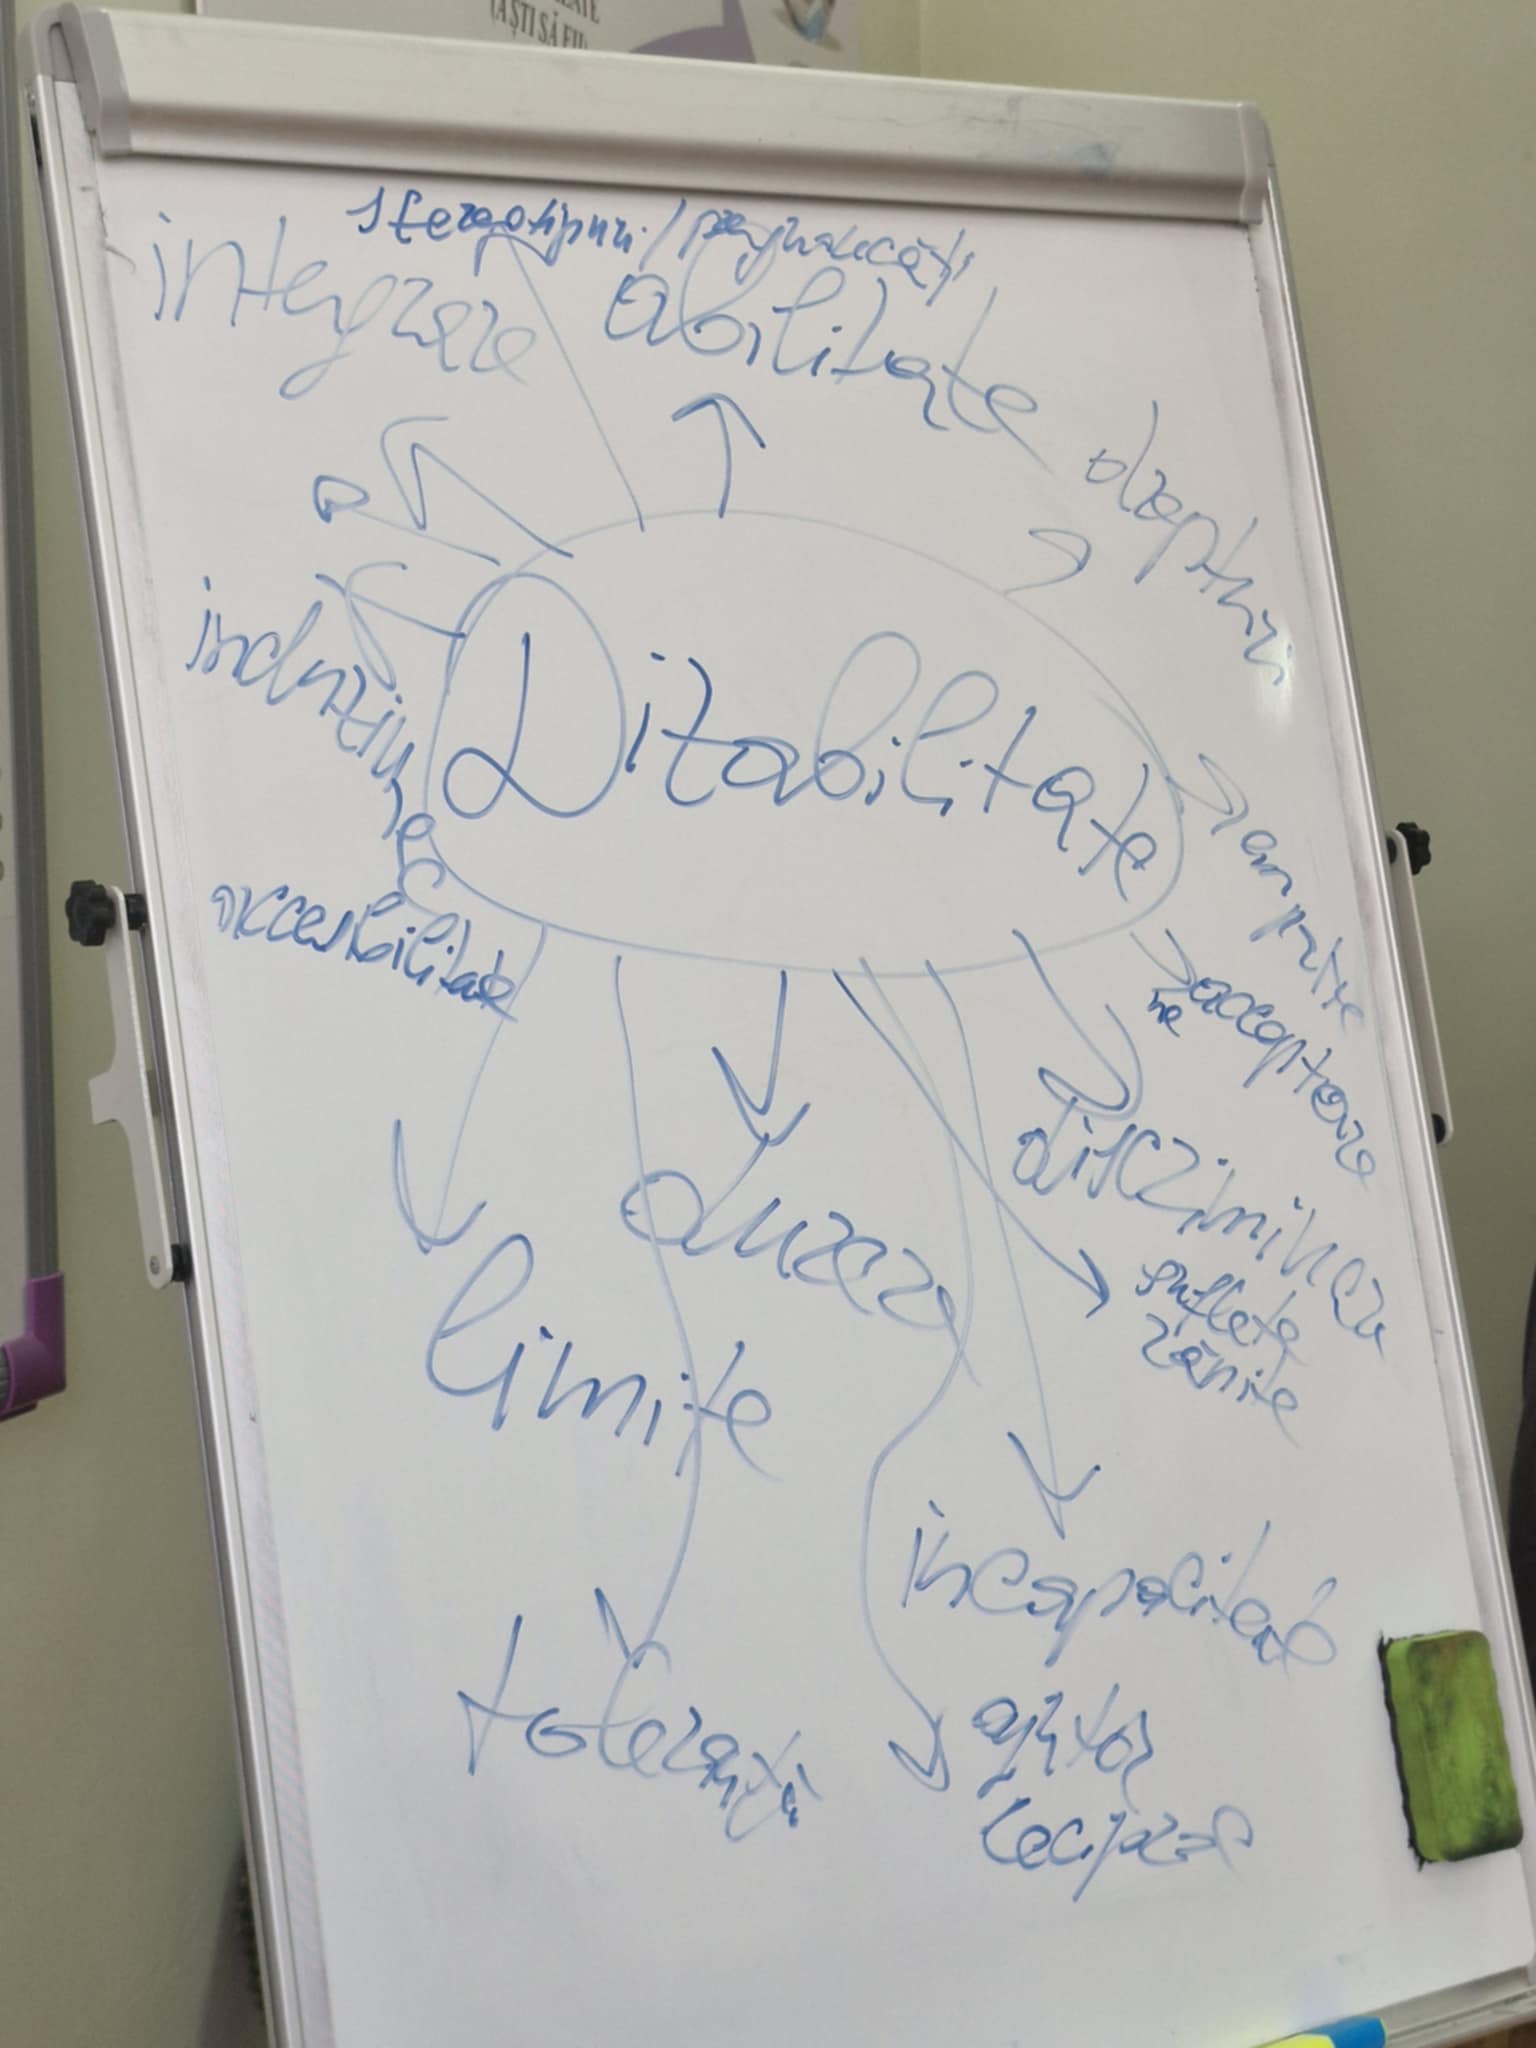 (A ȘTI SĂ FII
stereotipuri/prejudecăți
integrare
abilitate
drepturi
Dizabilitate
incluziune
accesibilitate
empatie
neacceptare
discriminare
suflete
rănite
limite
incapacitate
toleranță
ajutor
reciproc